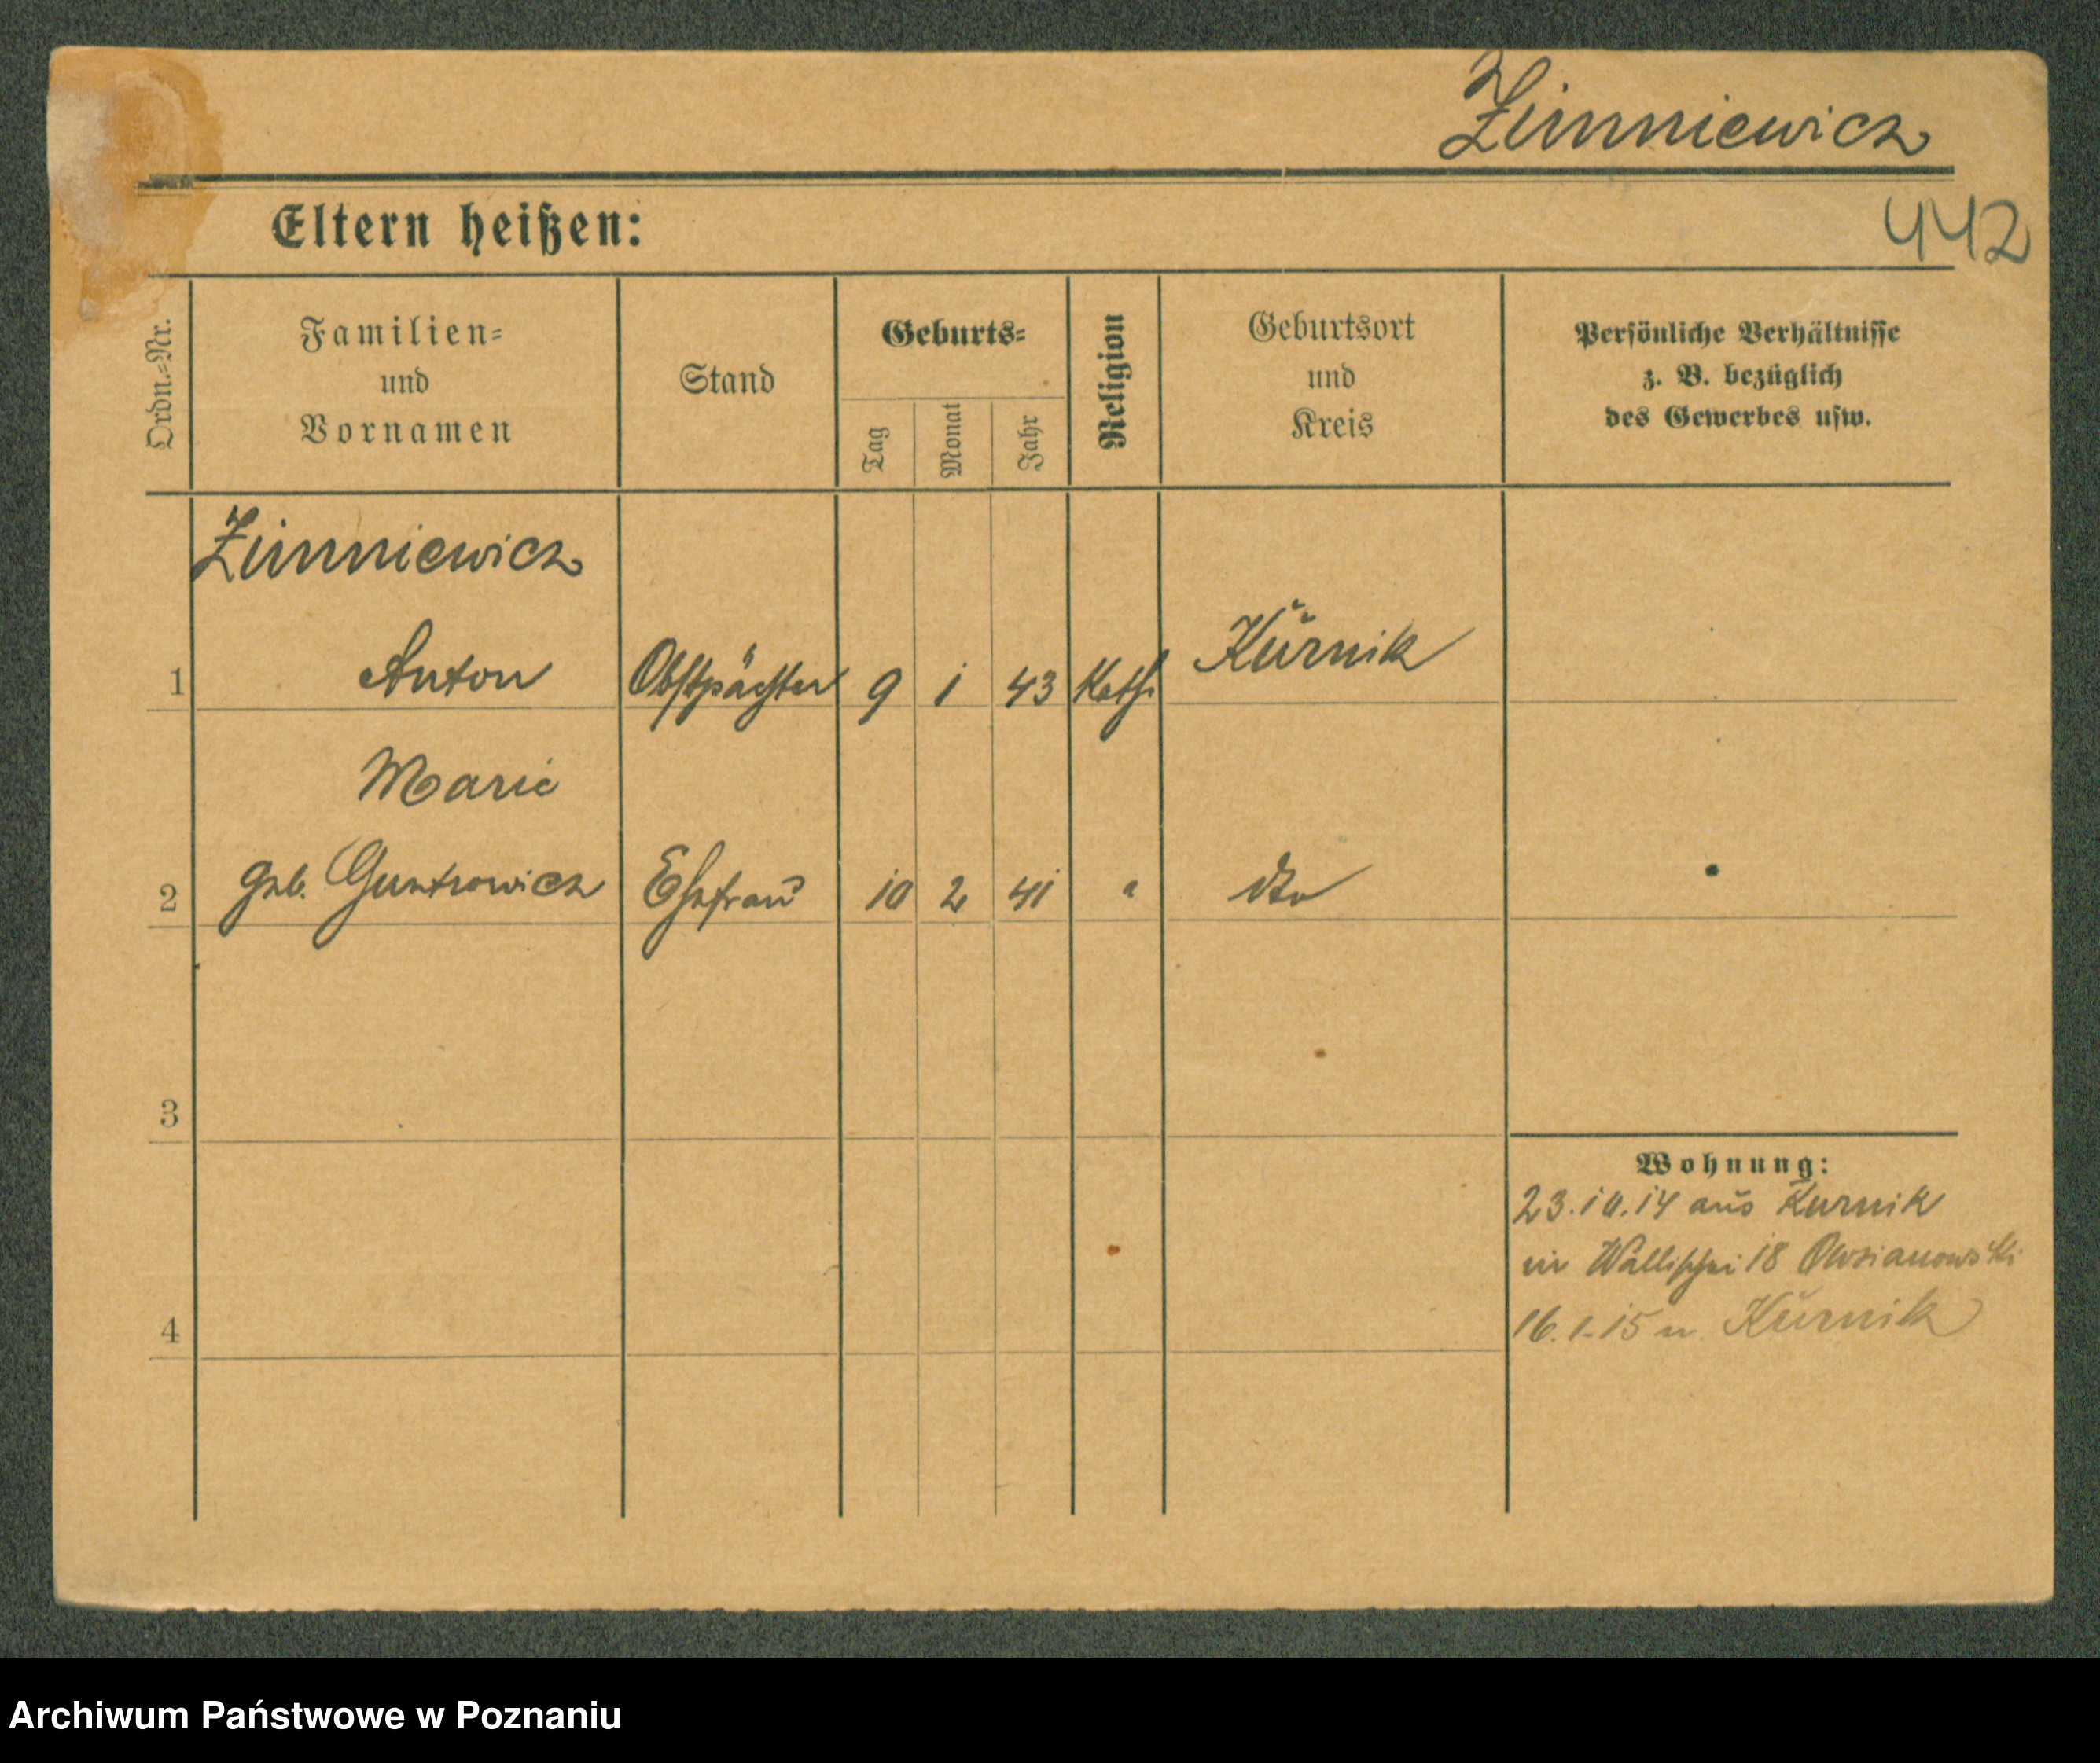 Zimniewicz
Eltern heißen:
442
Ordn.-Nr.
Familien-
und
Vornamen
Stand
Geburts-
Tag
Monat
Jahr
Religion
Geburtsort
und
Kreis
Persönliche Verhältnisse
z. B. bezüglich
des Gewerbes usw.
Zimniewicz
1 Anton Obstpächter 9 1 43 Kath. Kurnik
Marie
2 geb. Ehefrau 10 2 41 " dto
3
Wohnung:
23.10.14 aus Kurnik
in Wallischei 18
4 16.1.15 n. Kurnik
Archiwum Państwowe w Poznaniu